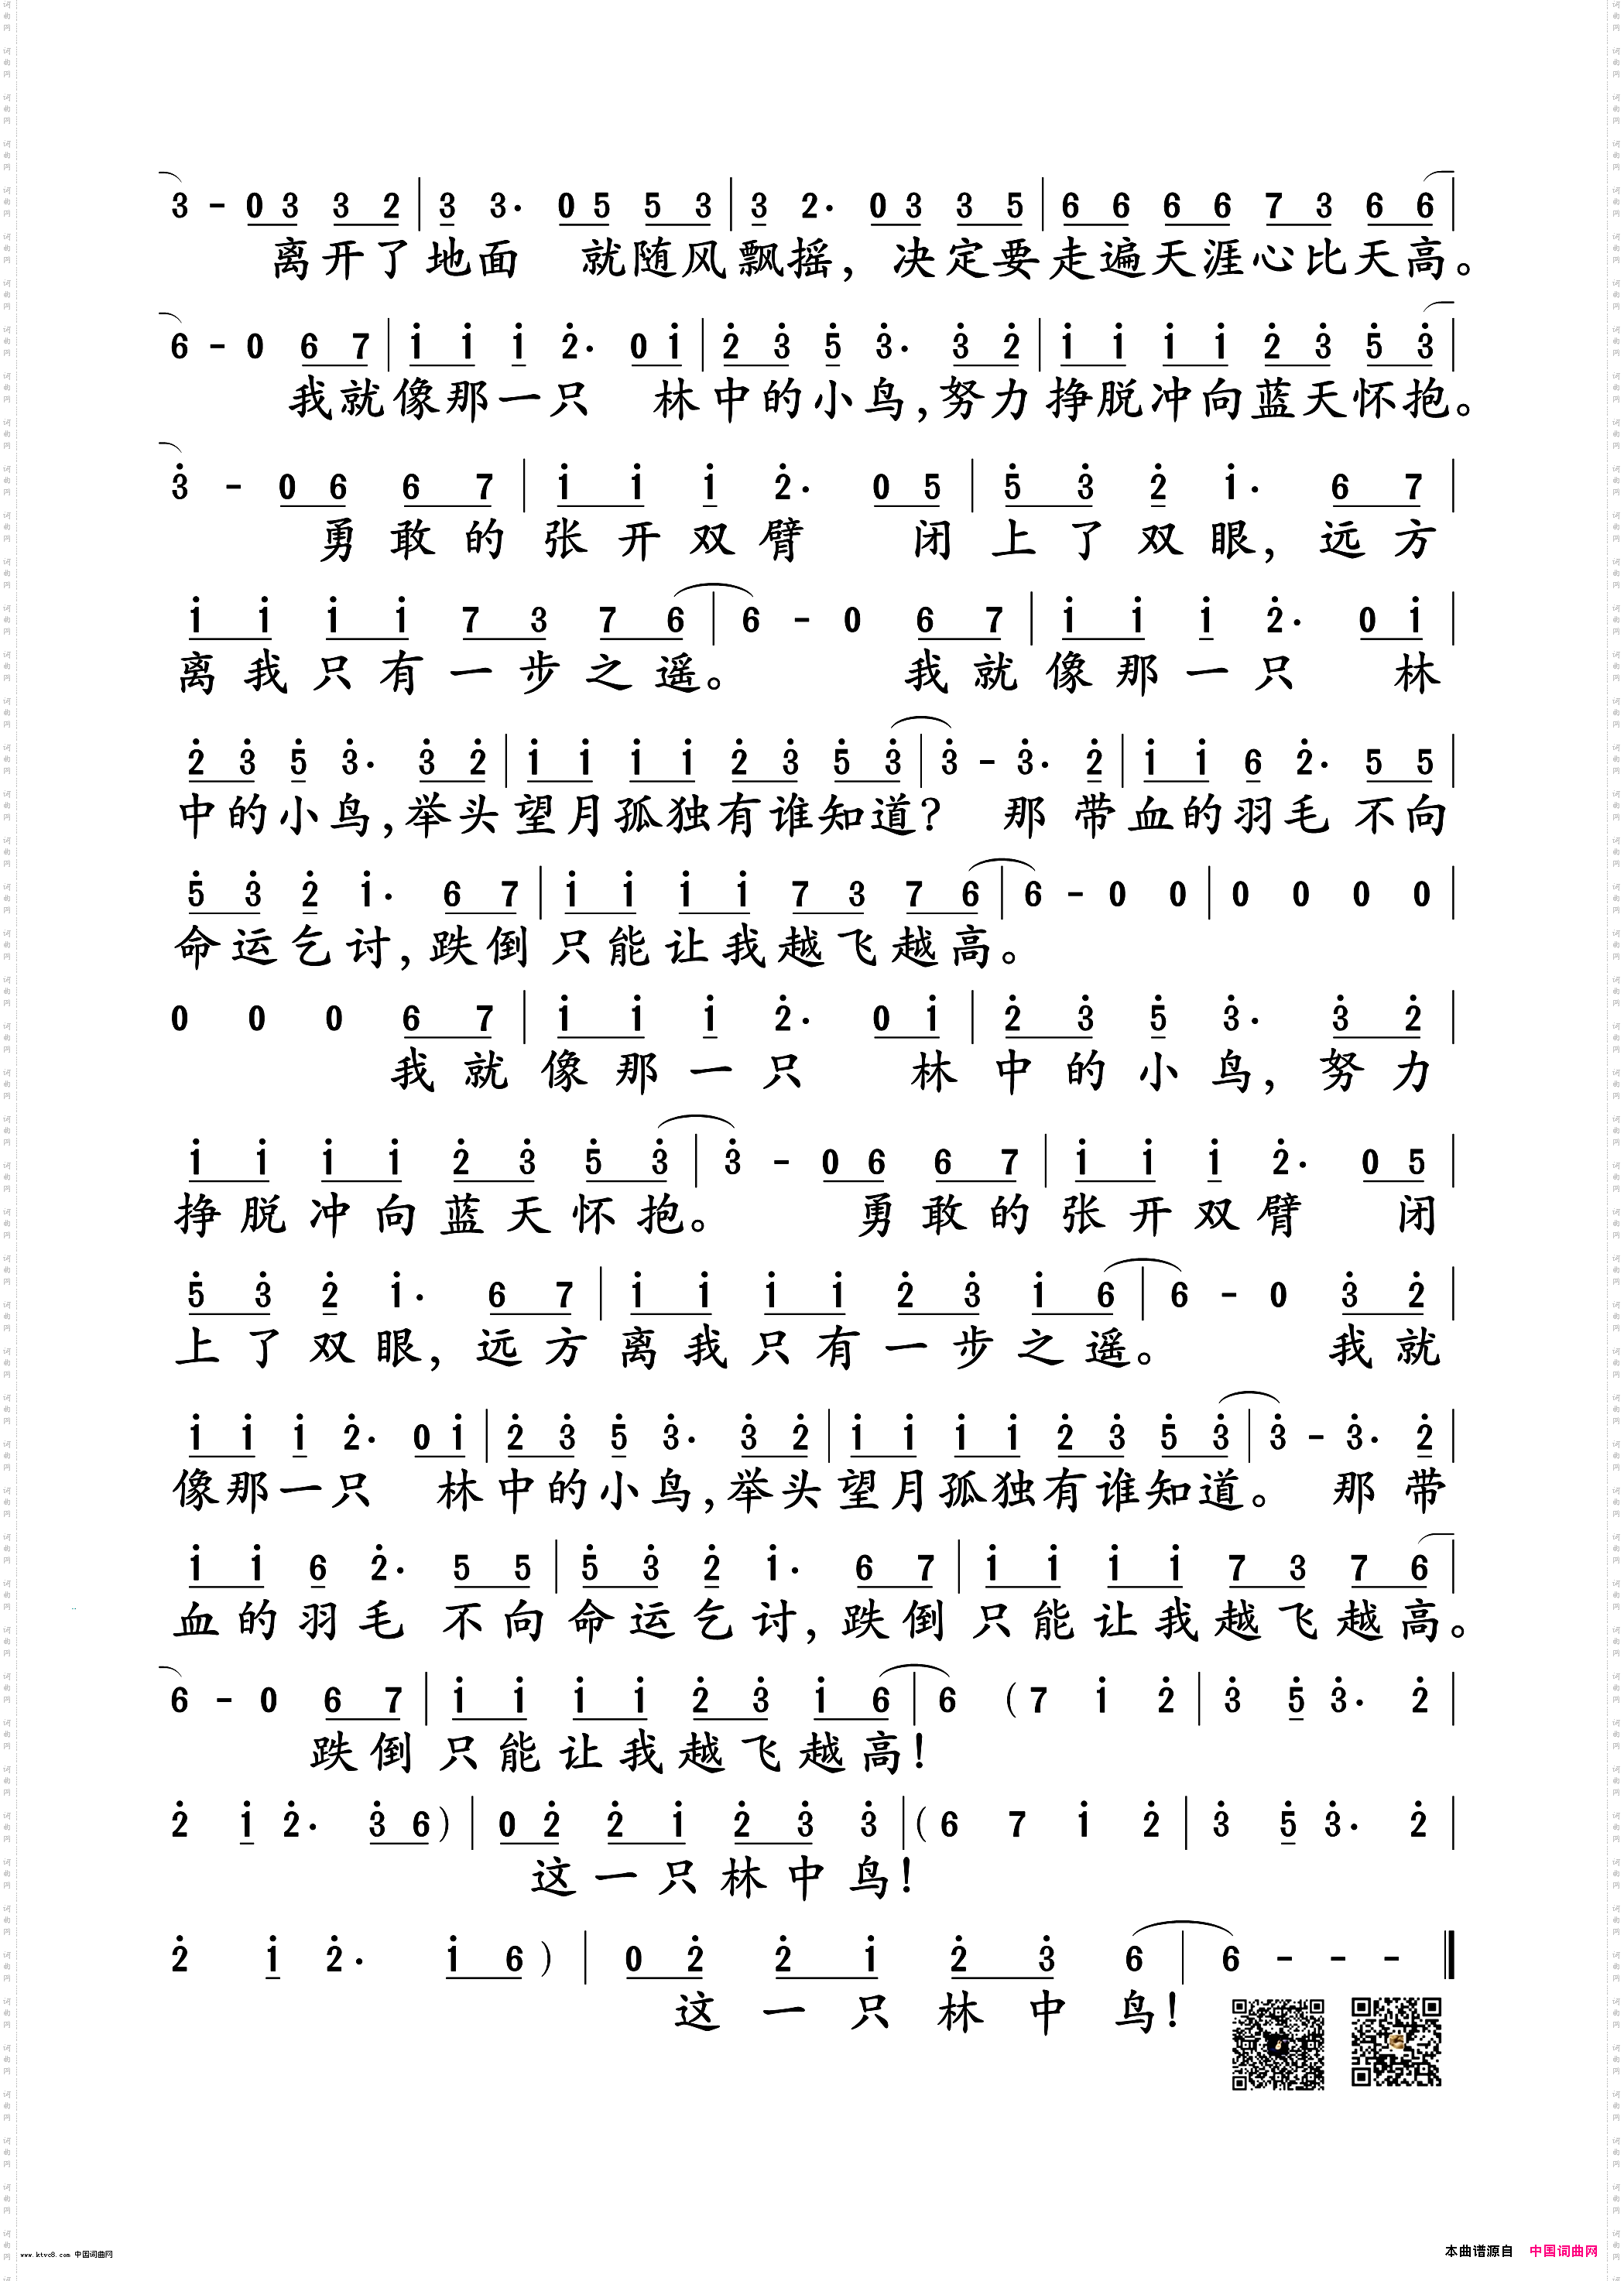 3 - 0 3 3 2 | 3 3· 0 5 5 3 | 3 2· 0 3 3 5 | 6 6 6 6 7 3 6 6 |
离开了地面 就随风飘摇，决定要走遍天涯心比天高。
6 - 0 6 7 | 1̇ 1̇ 1̇ 2̇· 0 1̇ | 2̇ 3̇ 5̇ 3̇· 3̇ 2̇ | 1̇ 1̇ 1̇ 1̇ 2̇ 3̇ 5̇ 3̇ |
我就像那一只 林中的小鸟，努力挣脱冲向蓝天怀抱。
3̇ - 0 6 6 7 | 1̇ 1̇ 1̇ 2̇· 0 5 | 5̇ 3̇ 2̇ 1̇· 6 7 |
勇敢的张开双臂 闭上了双眼，远方
1̇ 1̇ 1̇ 1̇ 7 3 7 6 | 6 - 0 6 7 | 1̇ 1̇ 1̇ 2̇· 0 1̇ |
离我只有一步之遥。 我就像那一只 林
2̇ 3̇ 5̇ 3̇· 3̇ 2̇ | 1̇ 1̇ 1̇ 1̇ 2̇ 3̇ 5̇ 3̇ | 3̇ - 3̇· 2̇ | 1̇ 1̇ 6 2̇· 5 5 |
中的小鸟，举头望月孤独有谁知道？ 那带血的羽毛不向
5̇ 3̇ 2̇ 1̇· 6 7 | 1̇ 1̇ 1̇ 1̇ 7 3 7 6 | 6 - 0 0 | 0 0 0 0 |
命运乞讨，跌倒只能让我越飞越高。
0 0 0 6 7 | 1̇ 1̇ 1̇ 2̇· 0 1̇ | 2̇ 3̇ 5̇ 3̇· 3̇ 2̇ |
我就像那一只 林中的小鸟，努力
1̇ 1̇ 1̇ 1̇ 2̇ 3̇ 5̇ 3̇ | 3̇ - 0 6 6 7 | 1̇ 1̇ 1̇ 2̇· 0 5 |
挣脱冲向蓝天怀抱。 勇敢的张开双臂 闭
5̇ 3̇ 2̇ 1̇· 6 7 | 1̇ 1̇ 1̇ 1̇ 2̇ 3̇ 1̇ 6 | 6 - 0 3̇ 2̇ |
上了双眼，远方离我只有一步之遥。 我就
1̇ 1̇ 1̇ 2̇· 0 1̇ | 2̇ 3̇ 5̇ 3̇· 3̇ 2̇ | 1̇ 1̇ 1̇ 1̇ 2̇ 3̇ 5̇ 3̇ | 3̇ - 3̇· 2̇ |
像那一只 林中的小鸟，举头望月孤独有谁知道。 那带
1̇ 1̇ 6 2̇· 5 5 | 5̇ 3̇ 2̇ 1̇· 6 7 | 1̇ 1̇ 1̇ 1̇ 7 3 7 6 |
血的羽毛 不向命运乞讨，跌倒只能让我越飞越高。
6 - 0 6 7 | 1̇ 1̇ 1̇ 1̇ 2̇ 3̇ 1̇ 6 | 6 (7 1̇ 2̇ | 3̇ 5̇ 3̇· 2̇ |
跌倒只能让我越飞越高！
2̇ 1̇ 2̇· 3̇ 6) | 0 2̇ 2̇ 1̇ 2̇ 3̇ 3̇ | (6 7 1̇ 2̇ | 3̇ 5̇ 3̇· 2̇ |
这一只林中鸟！
2̇ 1̇ 2̇· 1̇ 6) | 0 2̇ 2̇ 1̇ 2̇ 3̇ 6 | 6 - - - ‖
这一只林中鸟！
www.ktvc8.com 中国词曲网
本曲谱源自 中国词曲网